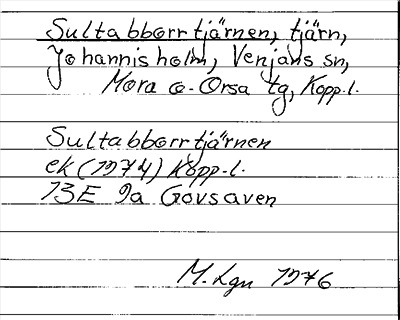 Sultabborrtjärnen, tjärn,
Johannisholm, Venjans sn,
Mora o. Orsa tg, Kopp.l.
Sultabborrtjärnen
ek (1974) Kopp.l.
13E 9a Govsaven
M. Lgn 1976